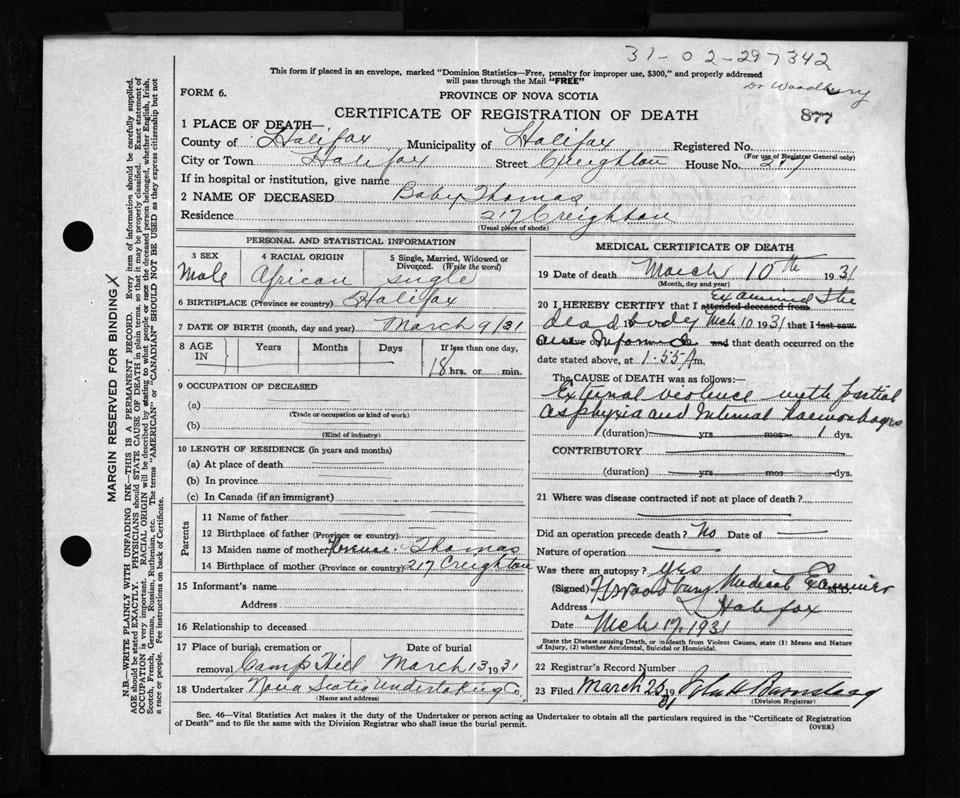 31-02-297342
This form if placed in an envelope, marked "Dominion Statistics—Free, penalty for improper use, $300," and properly addressed
will pass through the Mail "FREE"
Dr Woodbury
FORM 6.
PROVINCE OF NOVA SCOTIA
CERTIFICATE OF REGISTRATION OF DEATH
877
1 PLACE OF DEATH—
County of Halifax Municipality of Halifax Registered No.
(For use of Registrar General only)
City or Town Halifax Street Creighton House No. 217
If in hospital or institution, give name
2 NAME OF DECEASED Baby Thomas
Residence 217 Creighton
(Usual place of abode)
PERSONAL AND STATISTICAL INFORMATION
3 SEX
Male
4 RACIAL ORIGIN
African
5 Single, Married, Widowed or
Divorced. (Write the word)
Single
6 BIRTHPLACE (Province or country) Halifax
7 DATE OF BIRTH (month, day and year) March 9/31
8 AGE
IN
Years
Months
Days
If less than one day,
18 hrs. or min.
9 OCCUPATION OF DECEASED
(a)
(Trade or occupation or kind of work)
(b)
(Kind of industry)
10 LENGTH OF RESIDENCE (in years and months)
(a) At place of death
(b) In province
(c) In Canada (if an immigrant)
Parents
11 Name of father
12 Birthplace of father (Province or country)
13 Maiden name of mother Florence Thomas
14 Birthplace of mother (Province or country) 217 Creighton
15 Informant's name
Address
16 Relationship to deceased
17 Place of burial, cremation or
Date of burial
removal Camp Hill March 13 1931
18 Undertaker Nova Scotia Undertaking Co.
(Name and address)
MEDICAL CERTIFICATE OF DEATH
19 Date of death March 10th 1931
(Month, day and year)
20 I HEREBY CERTIFY that I attended deceased from examined the
dead body Mch 10 1931 that I last saw
and that death occurred on the
date stated above, at 1.55 A m.
The CAUSE OF DEATH was as follows:—
External violence with partial
asphyxia and Internal haemorrhages
(duration) yrs mos 1 dys.
CONTRIBUTORY
(duration) yrs mos dys.
21 Where was disease contracted if not at place of death?
Did an operation precede death? No Date of
Nature of operation
Was there an autopsy? Yes
(Signed) Woodbury Medical Examiner M.D.
Address Halifax
Date Mch 17, 1931
State the Disease causing Death, or in death from Violent Causes, state (1) Means and Nature
of Injury, (2) whether Accidental, Suicidal or Homicidal.
22 Registrar's Record Number
23 Filed March 23 1931
(Division Registrar)
Sec. 46—Vital Statistics Act makes it the duty of the Undertaker or person acting as Undertaker to obtain all the particulars required in the "Certificate of Registration
of Death" and to file the same with the Division Registrar who shall issue the burial permit.
(OVER)
MARGIN RESERVED FOR BINDING X
N.B.—WRITE PLAINLY WITH UNFADING INK—THIS IS A PERMANENT RECORD. Every item of information should be carefully supplied.
AGE should be stated EXACTLY. PHYSICIANS should STATE CAUSE OF DEATH in plain terms, so that it may be properly classified. Exact statement of
OCCUPATION is very important. RACIAL ORIGIN will be described by stating to what people or race the deceased person belonged, whether English, Irish,
Scotch, French, German, Russian, Ruthenian, etc. The terms "AMERICAN" or "CANADIAN" SHOULD NOT BE USED as they express citizenship but not
a race or people. Fee instructions on back of Certificate.